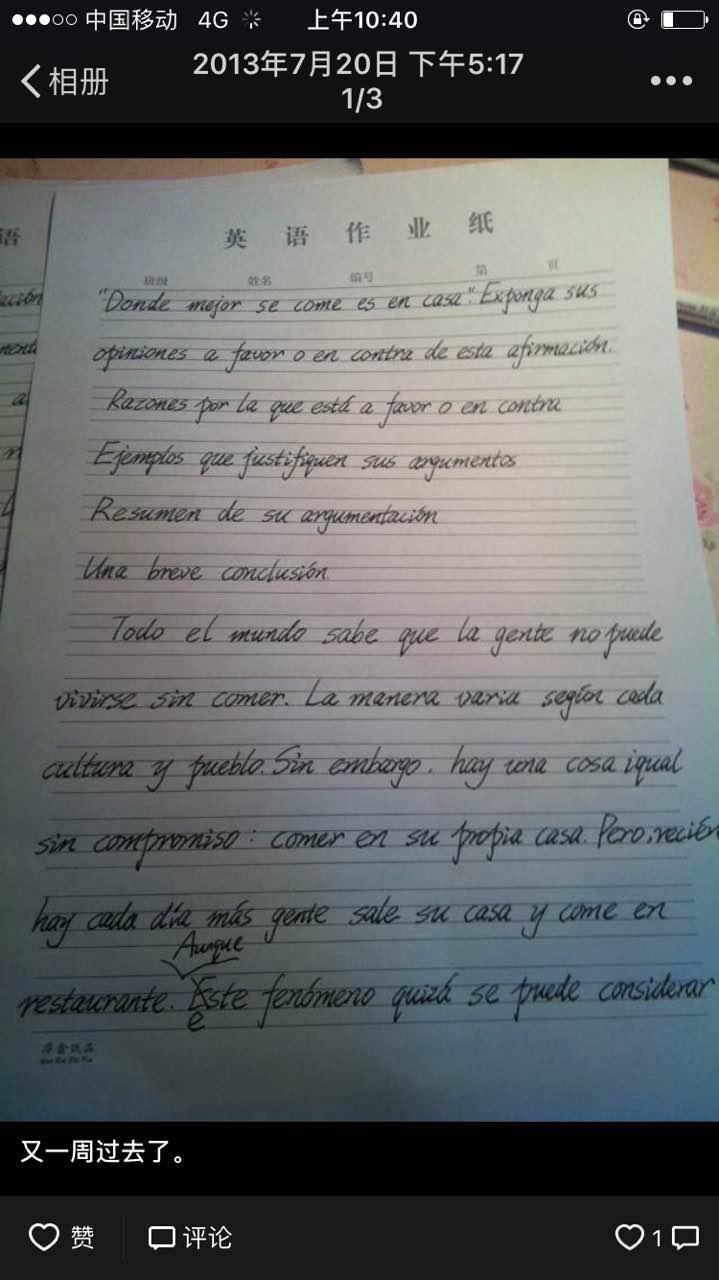 中国移动 4G 上午10:40
相册
2013年7月20日 下午5:17
1/3
英语作业纸
班级 姓名 编号 第 页
"Donde mejor se come es en casa". Exponga sus
opiniones a favor o en contra de esta afirmación.
Razones por la que está a favor o en contra
Ejemplos que justifiquen sus argumentos
Resumen de su argumentación
Una breve conclusión.
Todo el mundo sabe que la gente no puede
vivirse sin comer. La manera varia según cada
cultura y pueblo. Sin embargo, hay una cosa igual
sin compromiso: comer en su propia casa. Pero, recién
hay cada día más gente sale su casa y come en
Aunque
restaurante. Este fenómeno quizá se puede considerar
e
语
ación
a
又一周过去了。
赞 评论 1